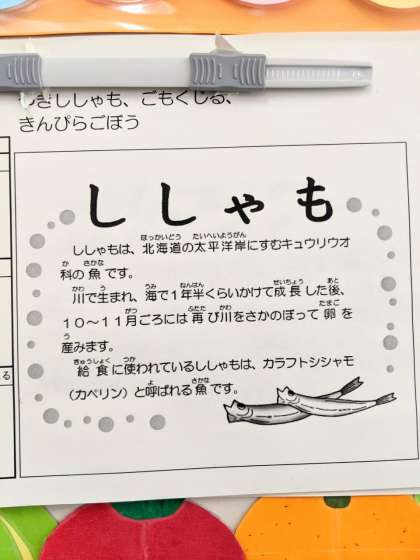 ししゃも、ごもくじる、
きんぴらごぼう
ししゃも
ししゃもは、北海道の太平洋岸にすむキュウリウオ
科の魚です。
川で生まれ、海で1年半くらいかけて成長した後、
10〜11月ごろには再び川をさかのぼって卵を
産みます。
給食に使われているししゃもは、カラフトシシャモ
(カペリン)と呼ばれる魚です。